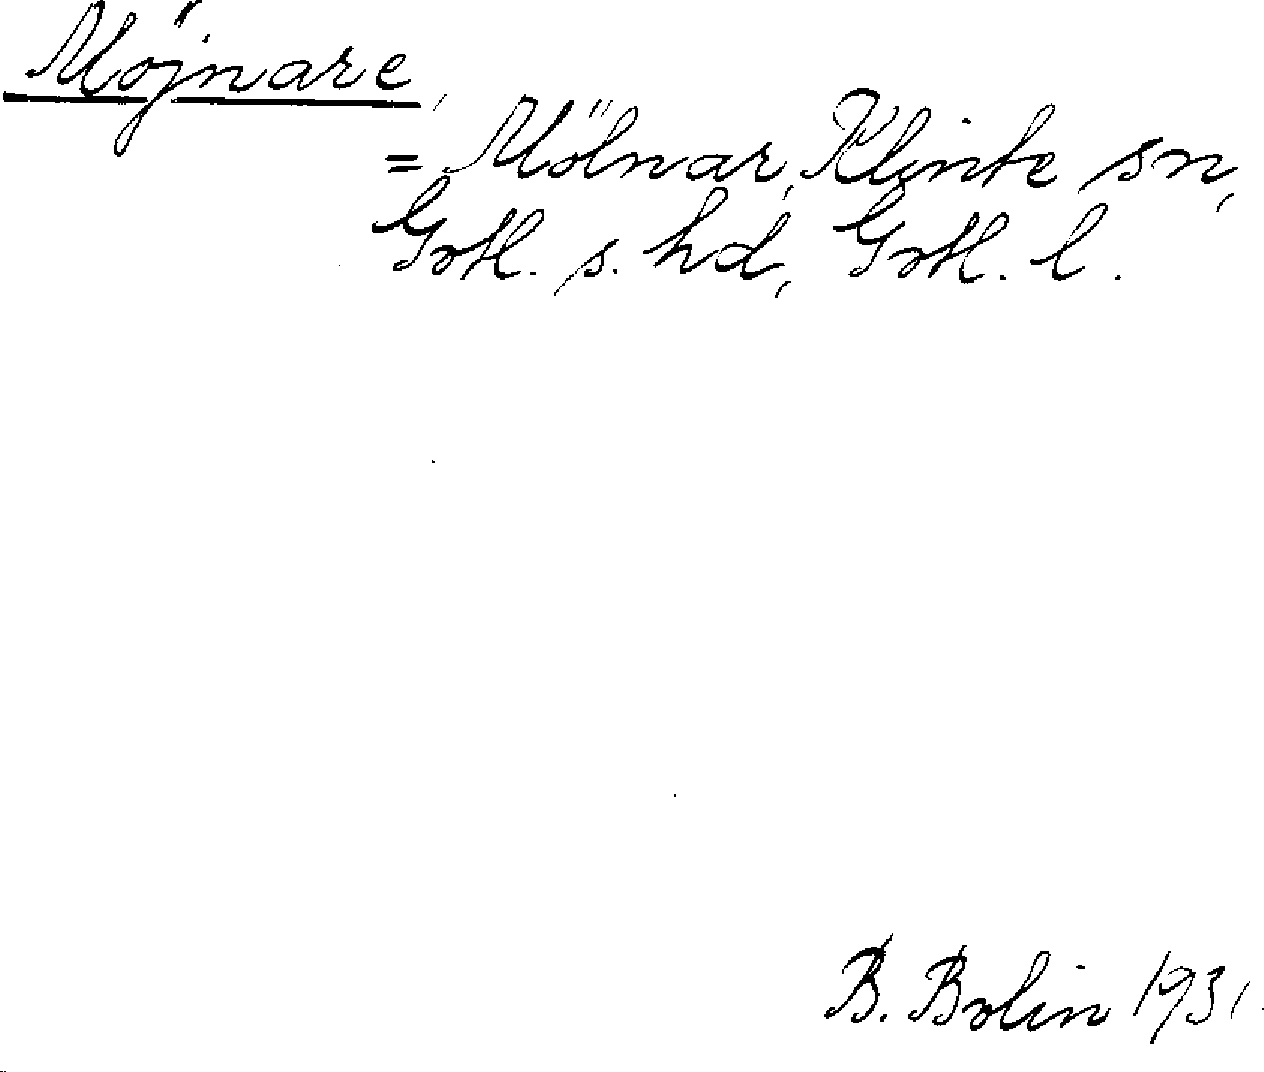 Möjnare,
= Mölnar, Klinte sn,
Gotl. s. hd, Gotl. l.
B. Bolin 1931.